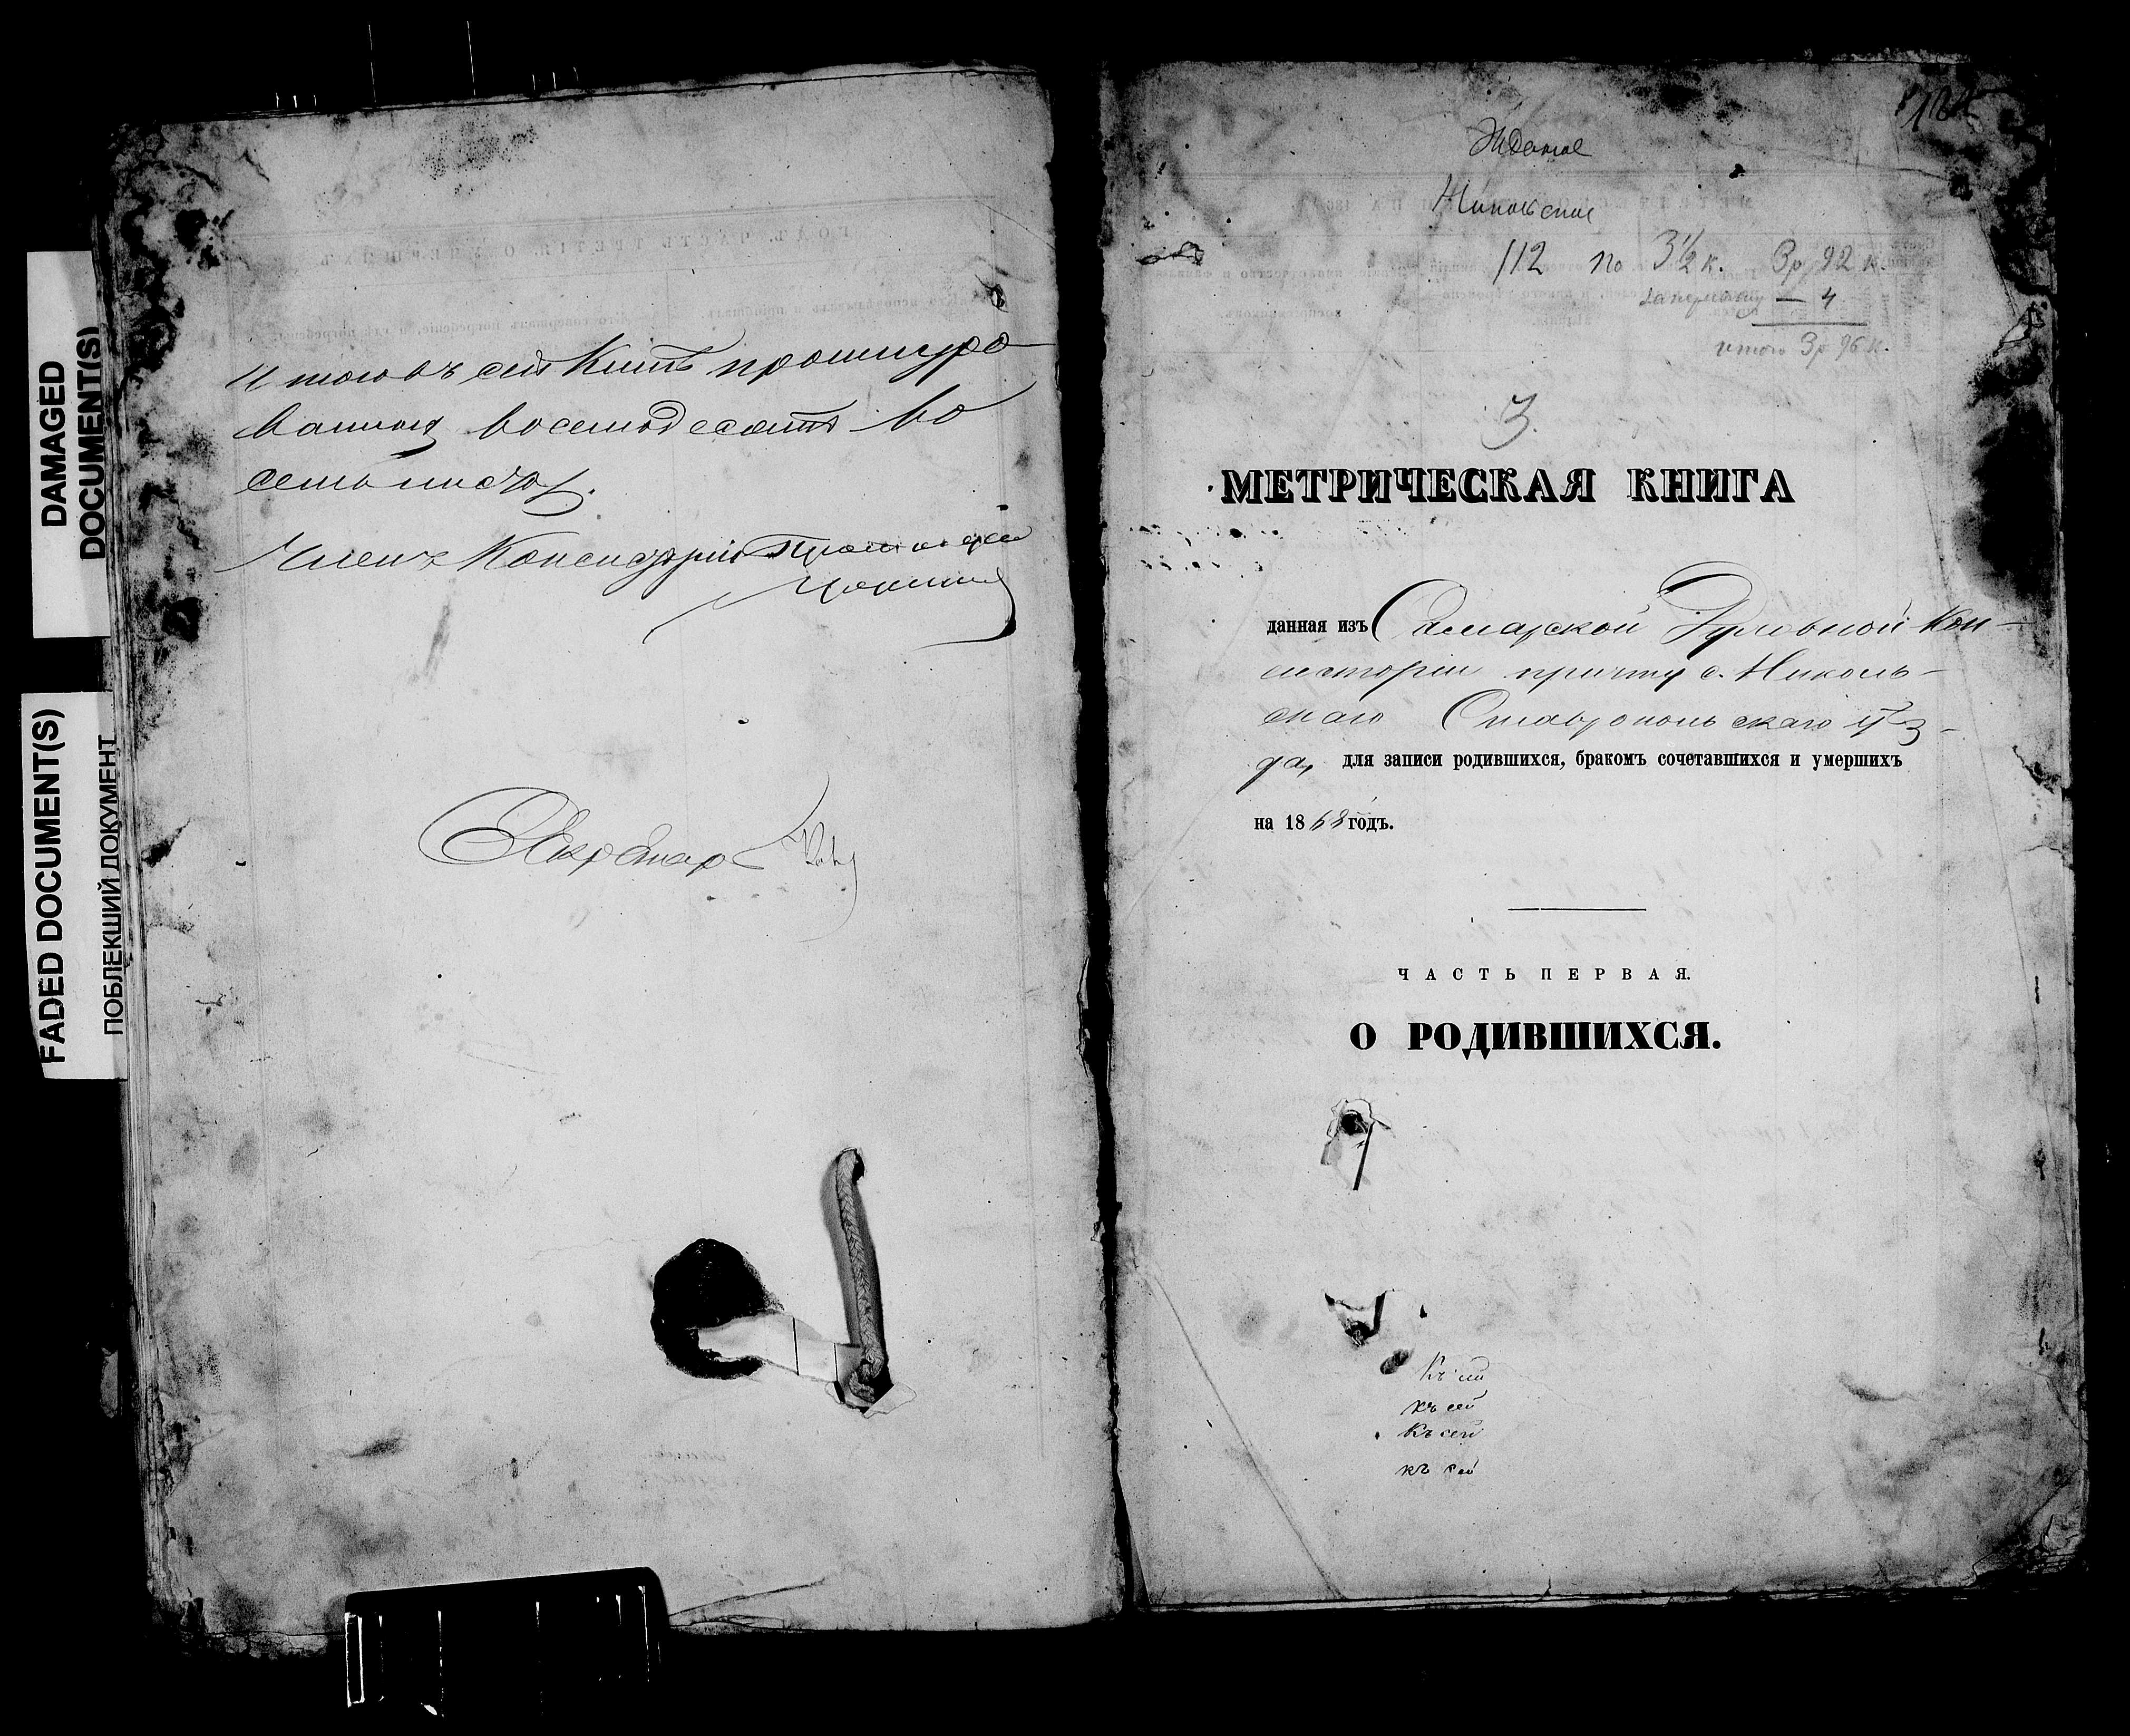 DAMAGED
DOCUMENT(S)
FADED DOCUMENT(S)
ПОБЛЕКШИЙ ДОКУМЕНТ
Итого въ сей книгѣ прошнуро-
ванныхъ восемьдесятъ во
семь листовъ.
Членъ Консисторіи Протоіерей
Секретарь
Никольское
112 по 3½ к. 3 р 92 к.
— 4
итого 3 р 96 к.
3.
МЕТРИЧЕСКАЯ КНИГА
данная изъ Самарской Духовной Кон-
систоріи причту с. Николь-
скаго Ставропольскаго уѣз-
да, для записи родившихся, бракомъ сочетавшихся и умершихъ
на 1868 годъ.
ЧАСТЬ ПЕРВАЯ.
О РОДИВШИХСЯ.
Къ сей
къ сей
Къ сей
къ сей